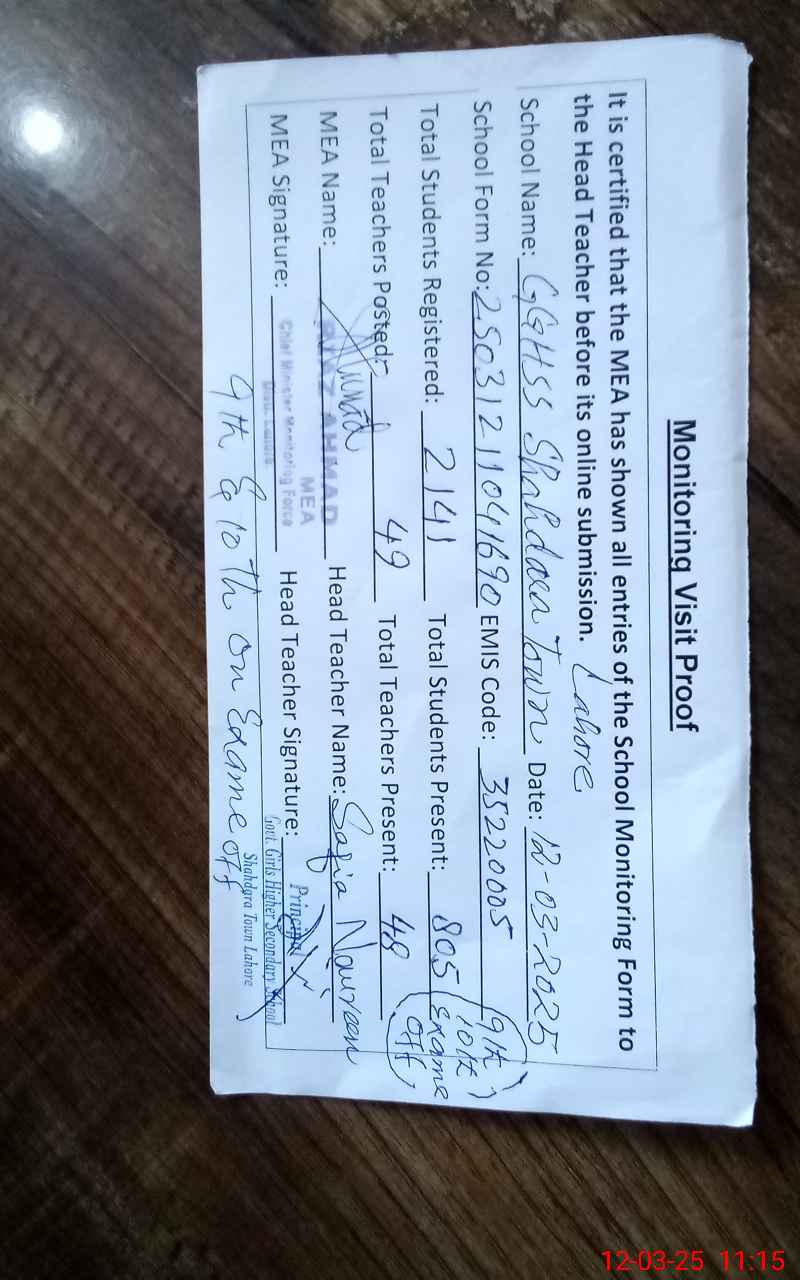 Monitoring Visit Proof
It is certified that the MEA has shown all entries of the School Monitoring Form to
the Head Teacher before its online submission. Lahore
School Name: GGHSS Shahdara Town Date: 12-03-2025
School Form No: 25031211041690 EMIS Code: 35220005
Total Students Registered: 2141 Total Students Present: 805 (9th 10th Exame off)
Total Teachers Posted: 49 Total Teachers Present: 48
MEA Name: AHMAD Head Teacher Name: Safia Naureen
MEA
MEA Signature: Chief Minister Monitoring Force Head Teacher Signature: Principal
Distt. Lahore Govt. Girls Higher Secondary School
Shahdara Town Lahore
9th & 10th on Exame off
12-03-25 11:15